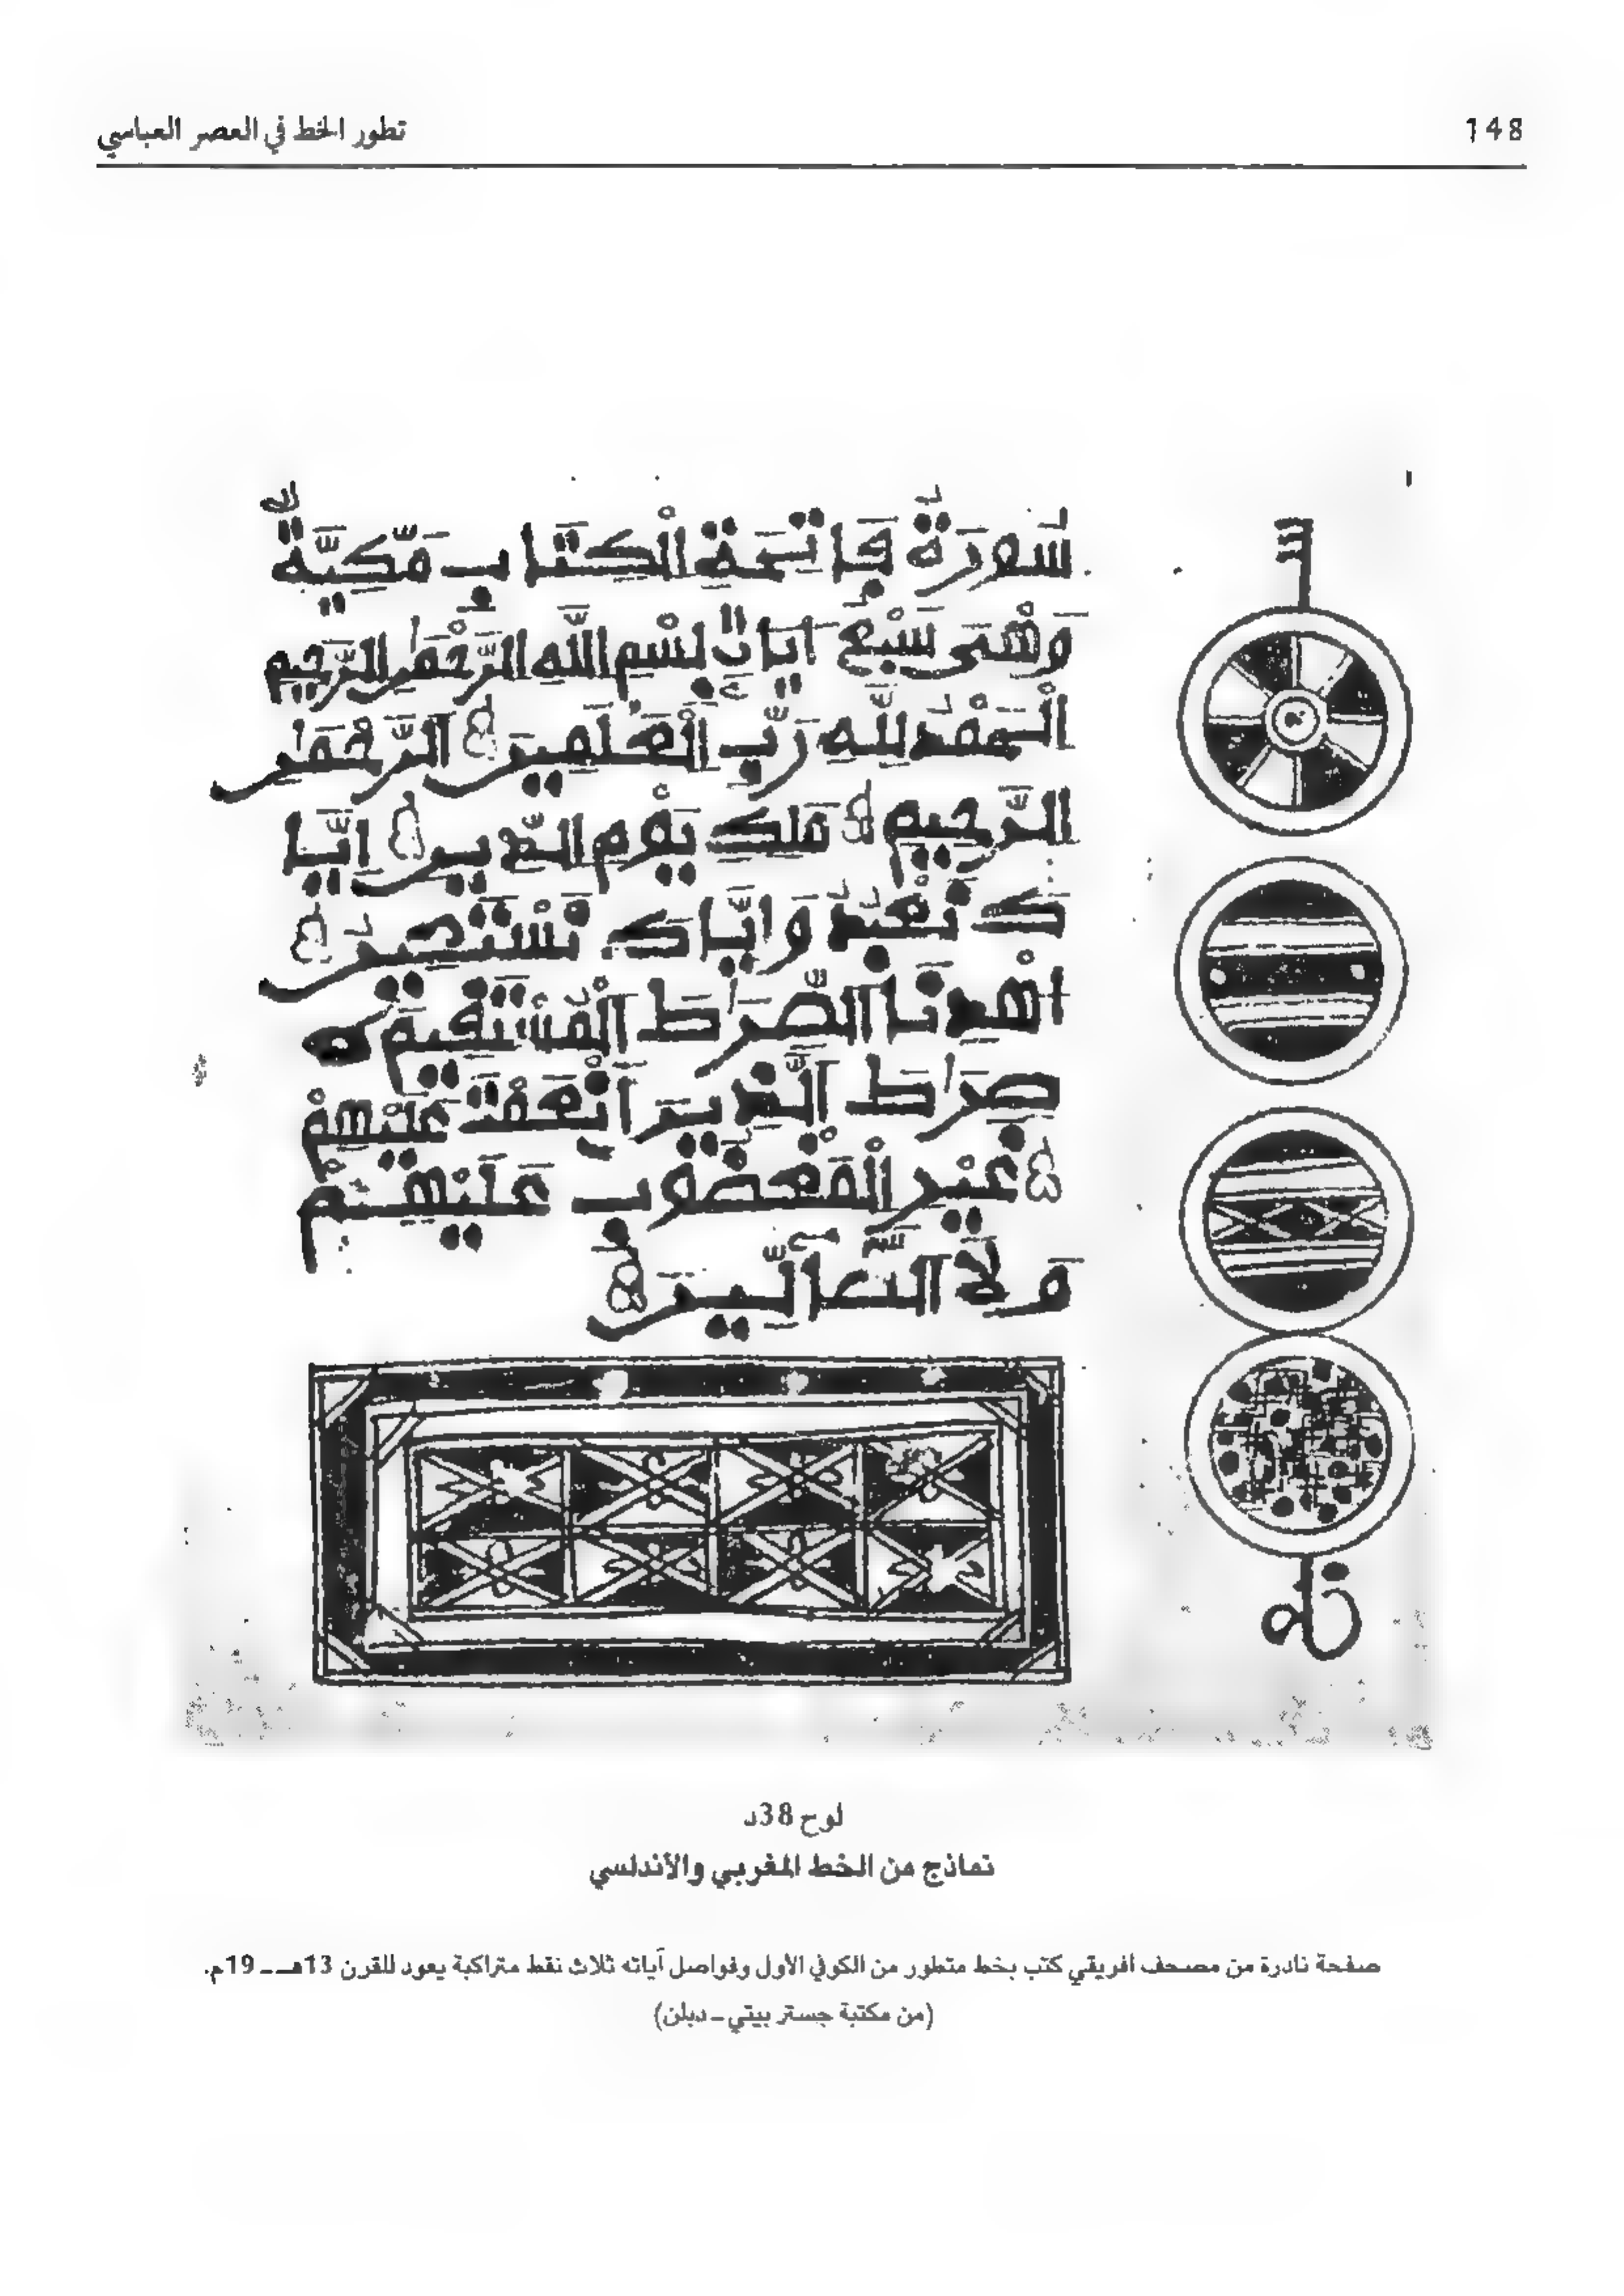 148
تطور الخط في العصر العباسي
سُورَةُ فَاتِحَةِ الْكِتَابِ مَكِّيَّةٌ
وَهْىَ سَبْعُ ءَايَاتٍ بِسْمِ اللَّهِ الرَّحْمَٰنِ الرَّحِيمِ
الْحَمْدُ لِلَّهِ رَبِّ الْعَٰلَمِينَ الرَّحْمَٰنِ
الرَّحِيمِ مَلِكِ يَوْمِ الدِّينِ إِيَّا
كَ نَعْبُدُ وَإِيَّاكَ نَسْتَعِينُ
اهْدِنَا الصِّرَٰطَ الْمُسْتَقِيمَ
صِرَٰطَ الَّذِينَ أَنْعَمْتَ عَلَيْهِمْ
غَيْرِ الْمَغْضُوبِ عَلَيْهِمْ
وَلَا الضَّآلِّينَ
لوح 38د
نماذج من الخط المغربي والأندلسي
صفحة نادرة من مصحف أفريقي كتب بخط متطور من الكوفي الأول وفواصل آياته ثلاث نقط متراكبة يعود للقرن 13هـ ــ 19م.
(من مكتبة جستر بيتي ــ دبلن)